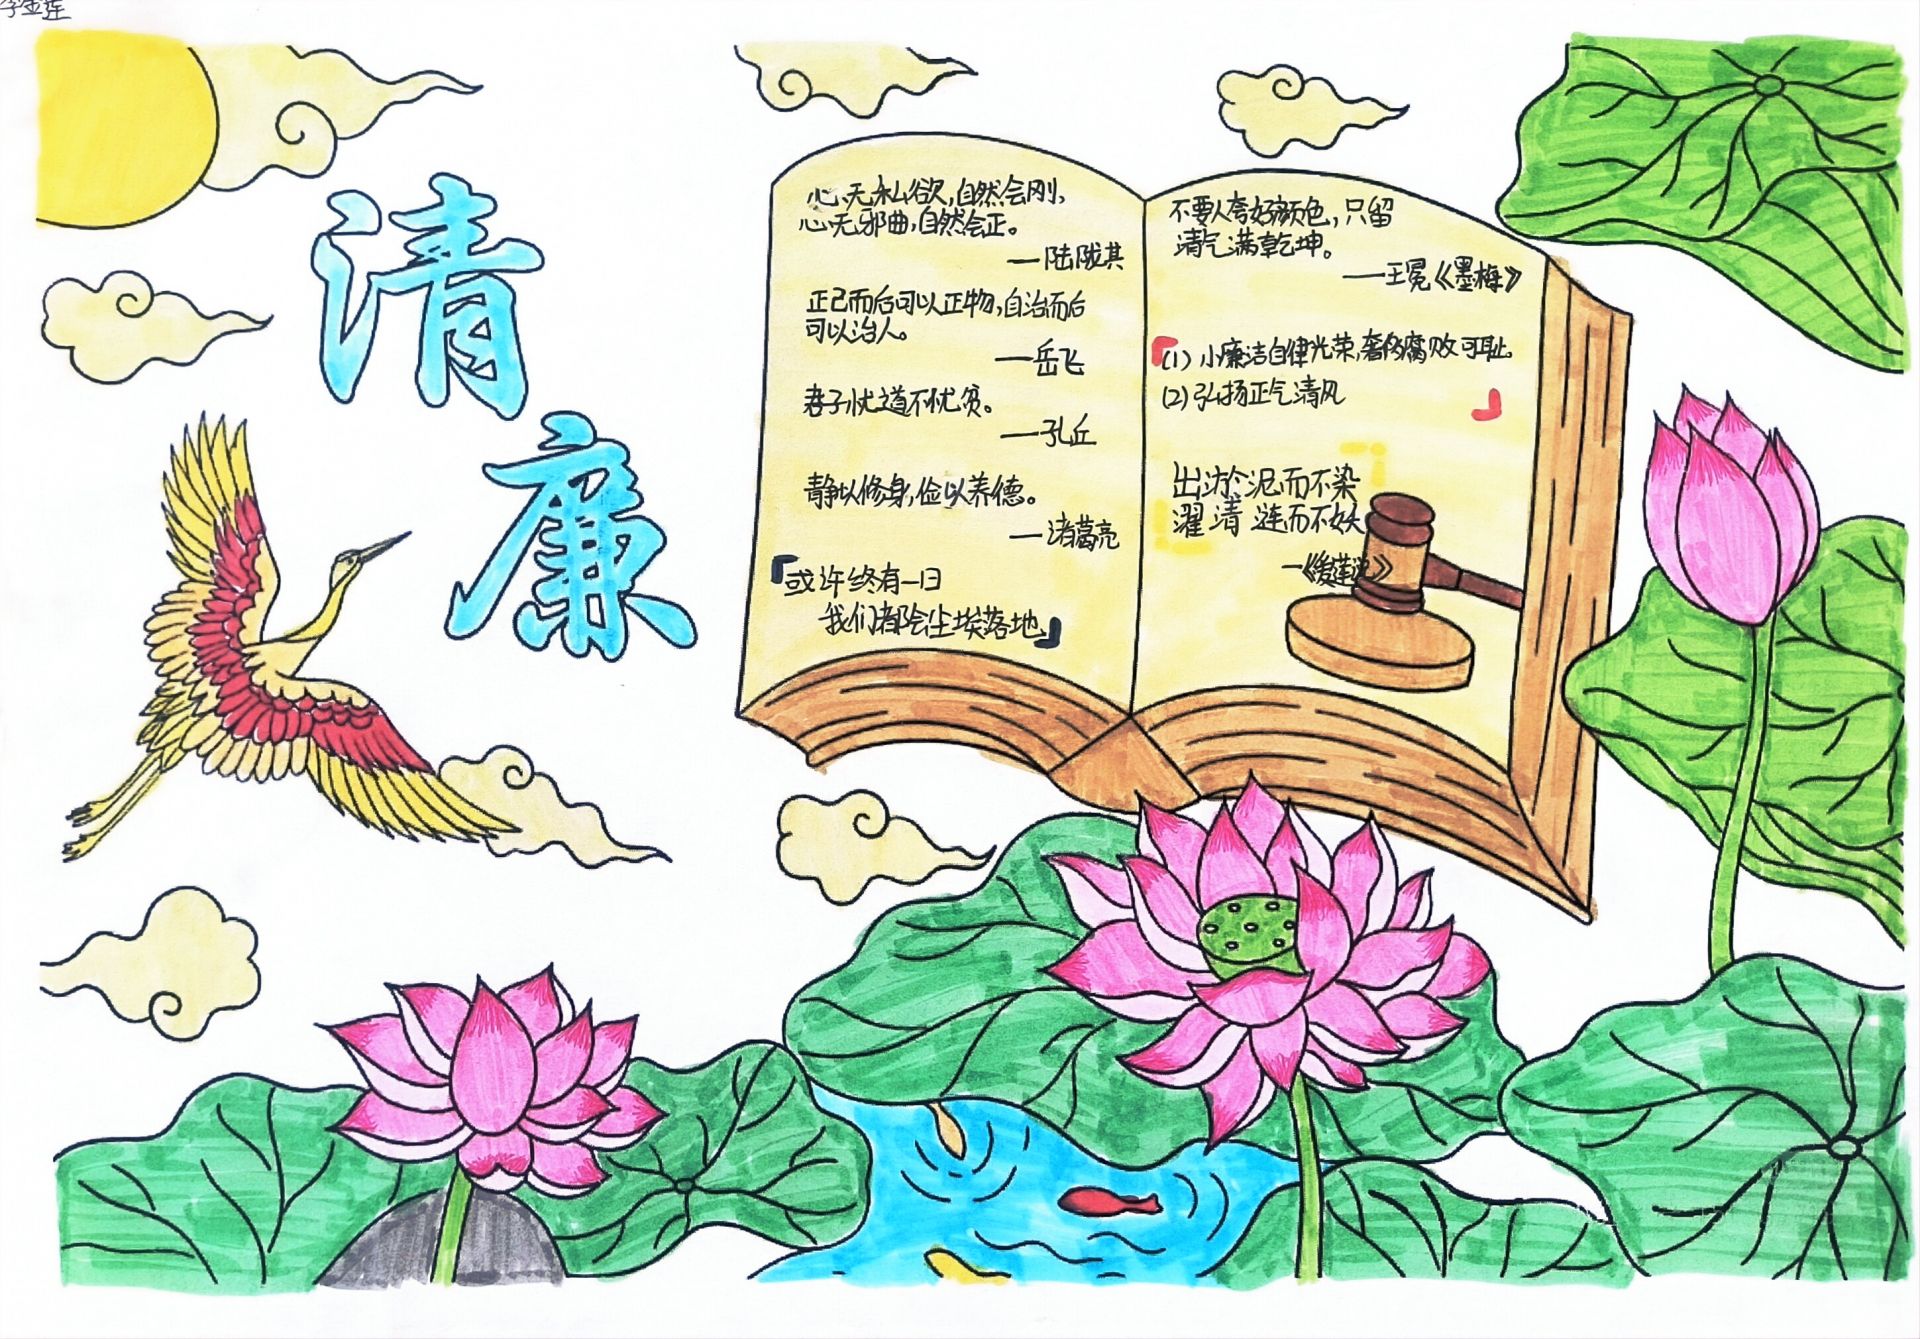 李金莲
清
廉
心无私欲，自然会刚，
心无邪曲，自然会正。
——陆陇其
正己而后可以正物，自治而后
可以治人。
——岳飞
君子忧道不忧贫。
——孔丘
静以修身，俭以养德。
——诸葛亮
「或许终有一日
我们都会尘埃落地」
不要人夸好颜色，只留
清气满乾坤。
——王冕《墨梅》
「(1) 小廉洁自律光荣，奢侈腐败可耻。
(2) 弘扬正气清风」
出淤泥而不染
濯清涟而不妖
—《爱莲说》